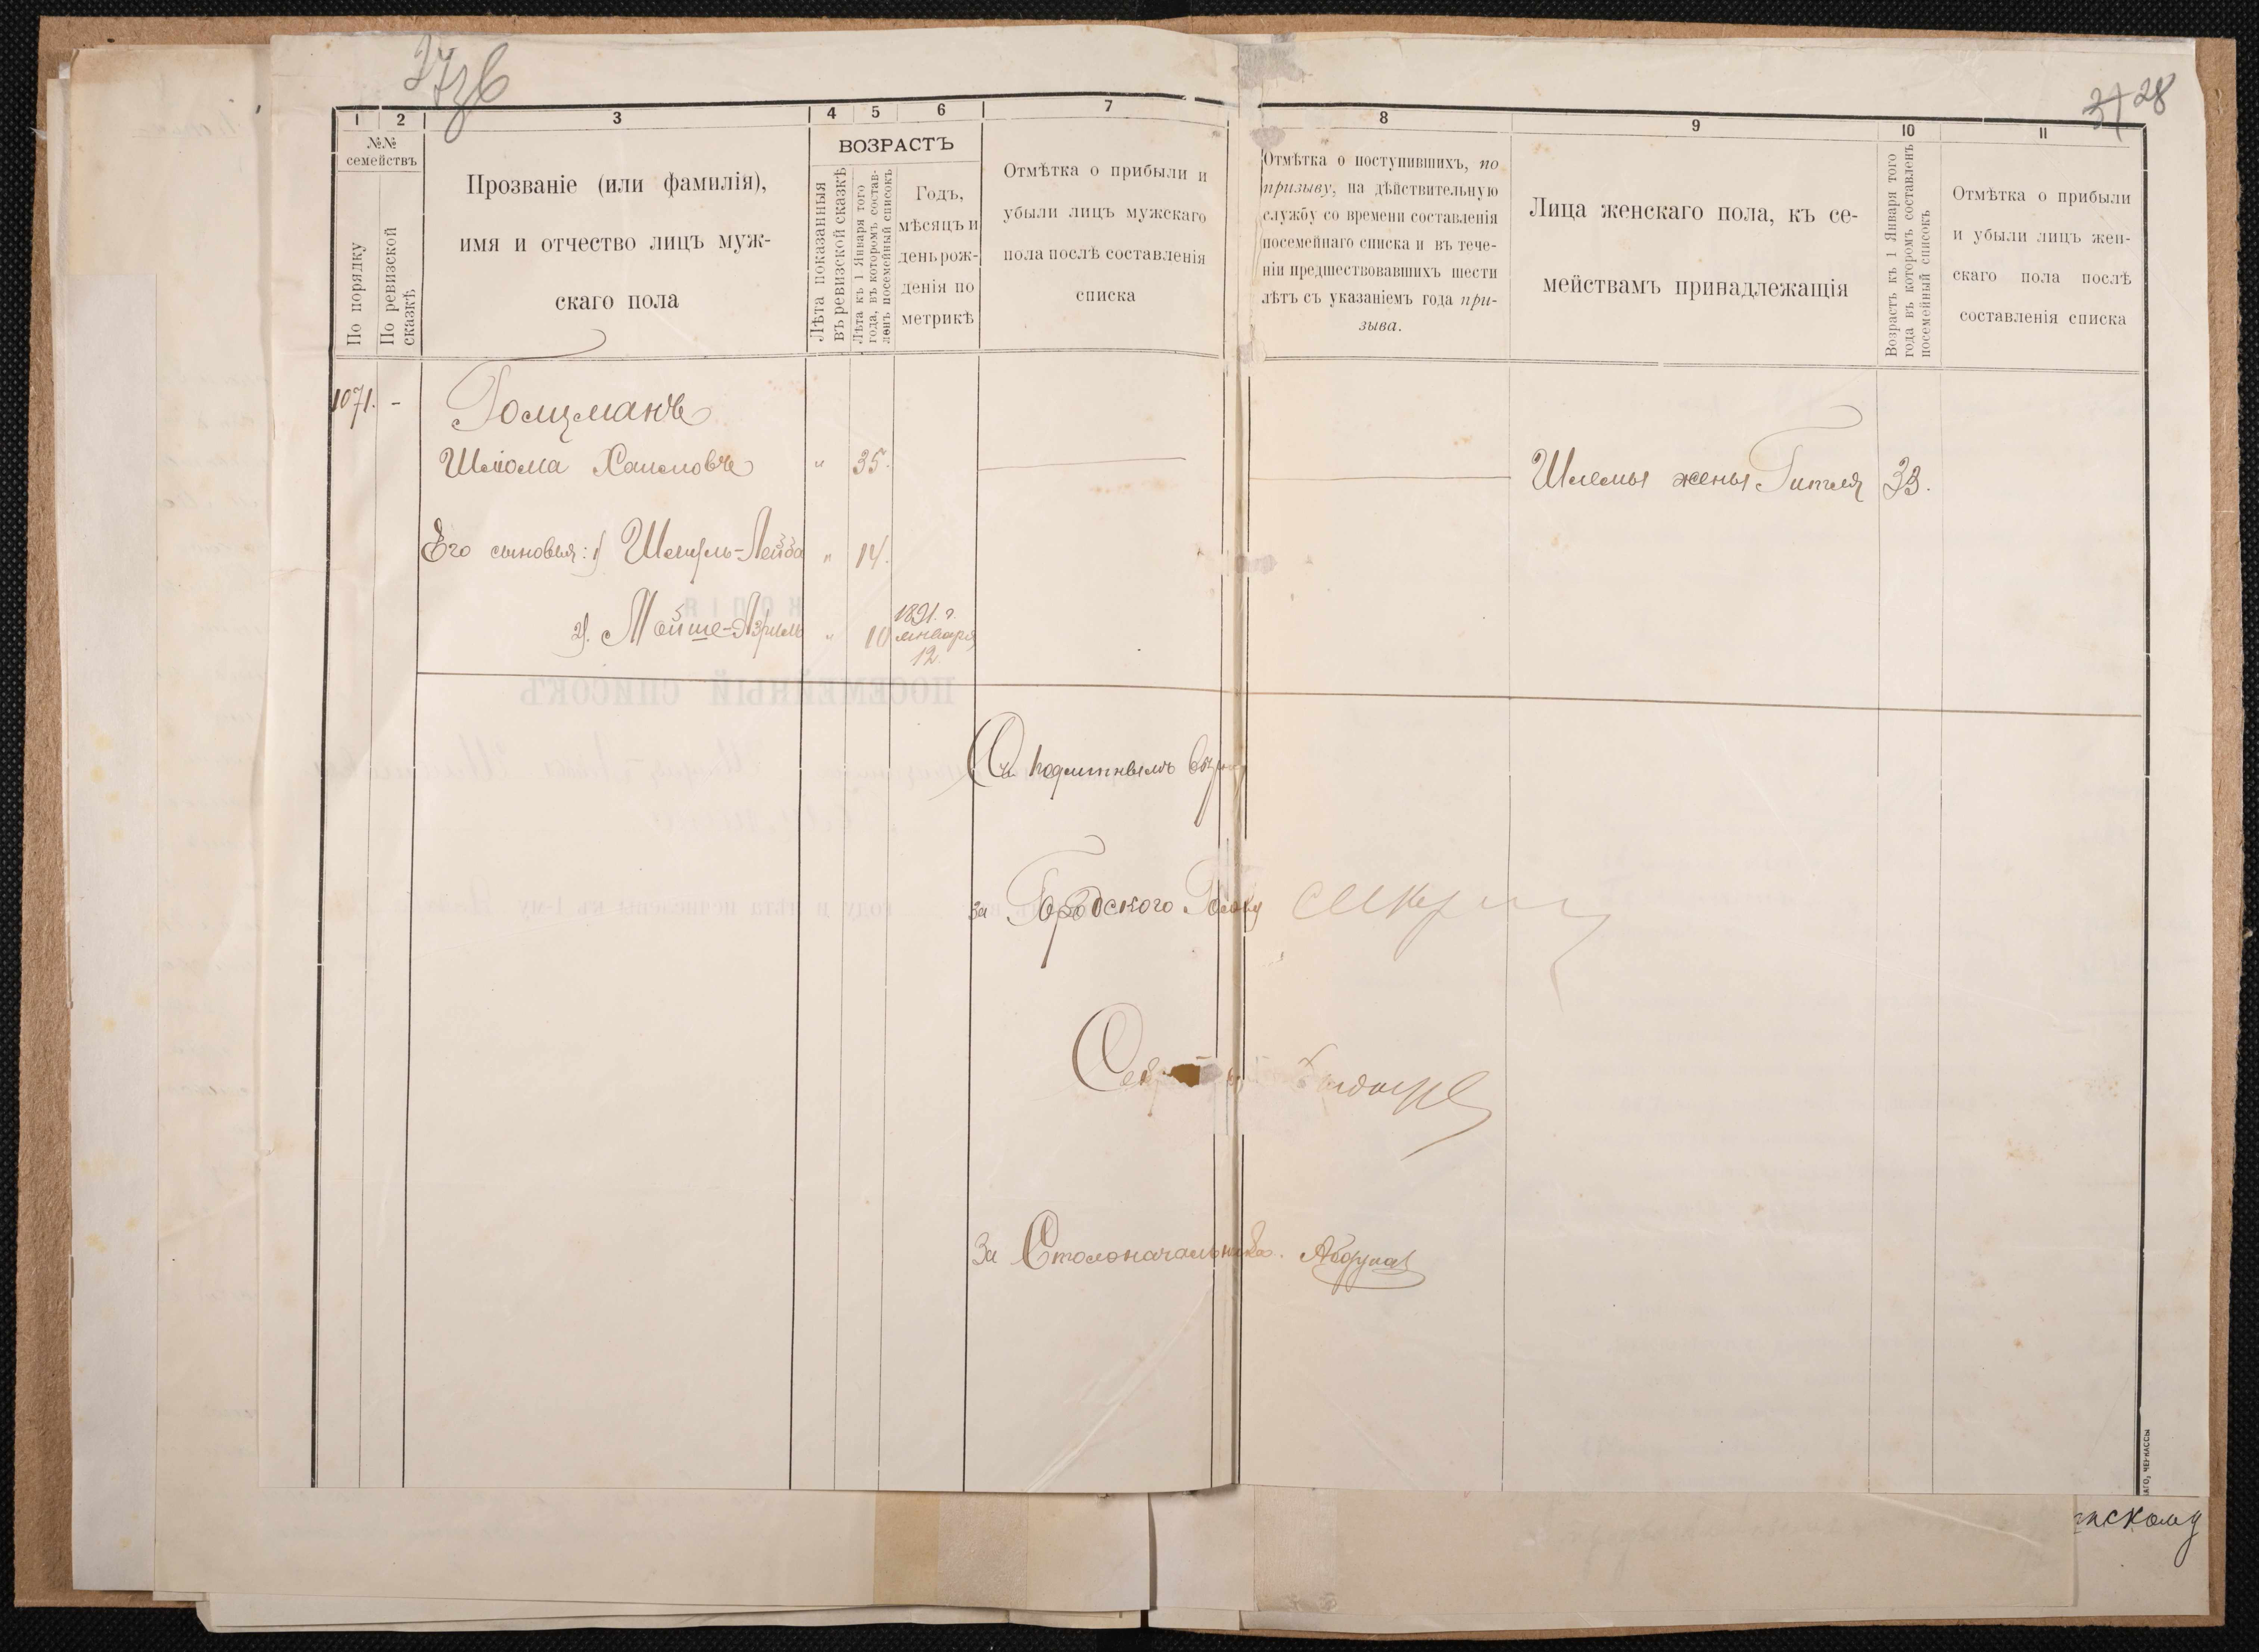 37 зв
37 28
1 2 3 4 5 6 7 8 9 10 11
№№ семействъ
По порядку
По ревизской сказкѣ
Прозваніе (или фамилія),
имя и отчество лицъ муж-
скаго пола
ВОЗРАСТЪ
Лѣта показанныя
въ ревизской сказкѣ
Лѣта къ 1 Января того
года, въ которомъ состав-
ленъ посемейный списокъ
Годъ,
мѣсяцъ и
день рож-
денія по
метрикѣ
Отмѣтка о прибыли и
убыли лицъ мужскаго
пола послѣ составленія
списка
Отмѣтка о поступившихъ, по
призыву, на дѣйствительную
службу со времени составленія
посемейнаго списка и въ тече-
ніи предшествовавшихъ шести
лѣтъ съ указаніемъ года при-
зыва.
Лица женскаго пола, къ се-
мействамъ принадлежащія
Возрастъ къ 1 Января того
года въ которомъ составленъ
посемейный списокъ
Отмѣтка о прибыли
и убыли лицъ жен-
скаго пола послѣ
составленія списка
1071. -
Голцманъ
Шлиома Хаимовъ " 35.
Шлемы жены Гитля 33.
Его сыновья: 1) Шмуль-Лейба " 14.
2). Мойше-Азриль " 10 1891. г. января 12
Съ подлиннымъ вѣрно
за Городского Голову
За Столоначальника.
АГО, ЧЕРКАССЫ
скому
КОПІЯ
ПОСЕМЕЙНЫЙ СПИСОКЪ
году и лѣта исчислены къ 1-му